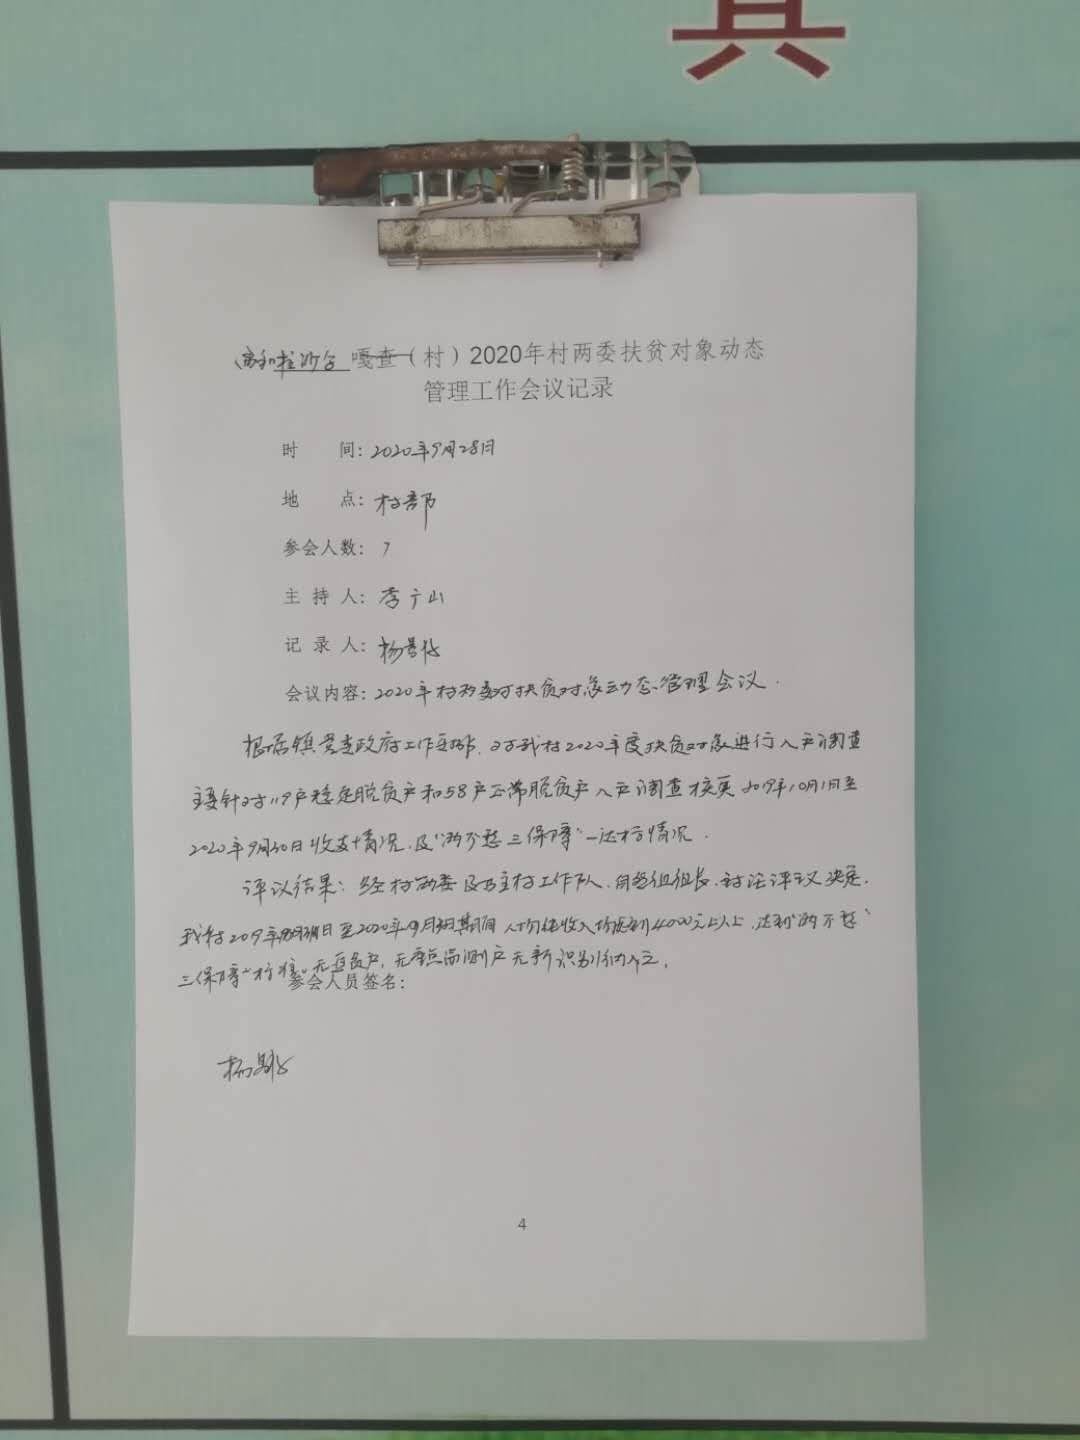 真
嘎查（村）2020年村两委扶贫对象动态
管理工作会议记录
时 间：2020年9月28日
地 点：村部
参会人数：7
主 持 人：李广山
记 录 人：杨
会议内容：2020年村两委对扶贫对象动态管理会议.
根据镇党委政府工作安排，对我村2020年度扶贫对象进行入户调查
主要针对119户稳定脱贫户和58户正常脱贫户入户调查核实2019年10月1日至
2020年9月30日收支情况.及"两不愁三保障"达标情况.
评议结果：经村两委及驻村工作队.各组组长.讨论评议决定.
我村2019年10月1日至2020年9月30日期间人均纯收入均达到4000元以上.达到"两不愁
三保障"标准.无返贫户，无监测户无新识别纳入.
参会人员签名：
杨
4